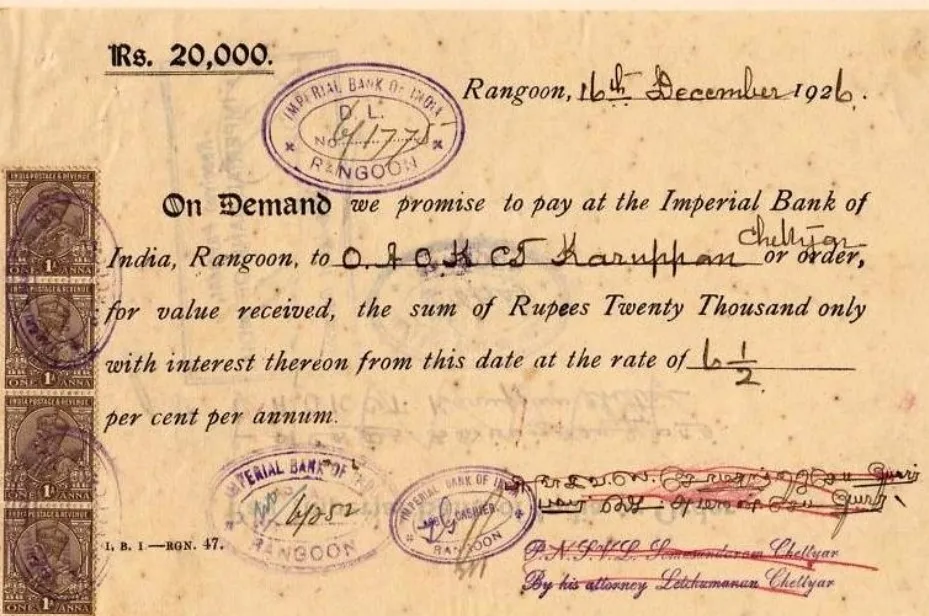 Rs. 20,000.
Rangoon, 16th December 1926.
IMPERIAL BANK OF INDIA
D. L.
No. 6/1775
RANGOON
On Demand we promise to pay at the Imperial Bank of
India, Rangoon, to O. A O. K CT Karuppan Chettyar or order,
for value received, the sum of Rupees Twenty Thousand only
with interest thereon from this date at the rate of 6 1/2
per cent per annum.
INDIA POSTAGE & REVENUE
1A
ONE ANNA
INDIA POSTAGE & REVENUE
1A
ONE ANNA
INDIA POSTAGE & REVENUE
1A
ONE ANNA
INDIA POSTAGE & REVENUE
1A
ONE ANNA
IMPERIAL BANK OF
6/252
RANGOON
IMPERIAL BANK OF INDIA
CASHIER
RANGOON
I. B. I—RGN. 47.
Chettyar
By his attorney Letchumanan Chettyar